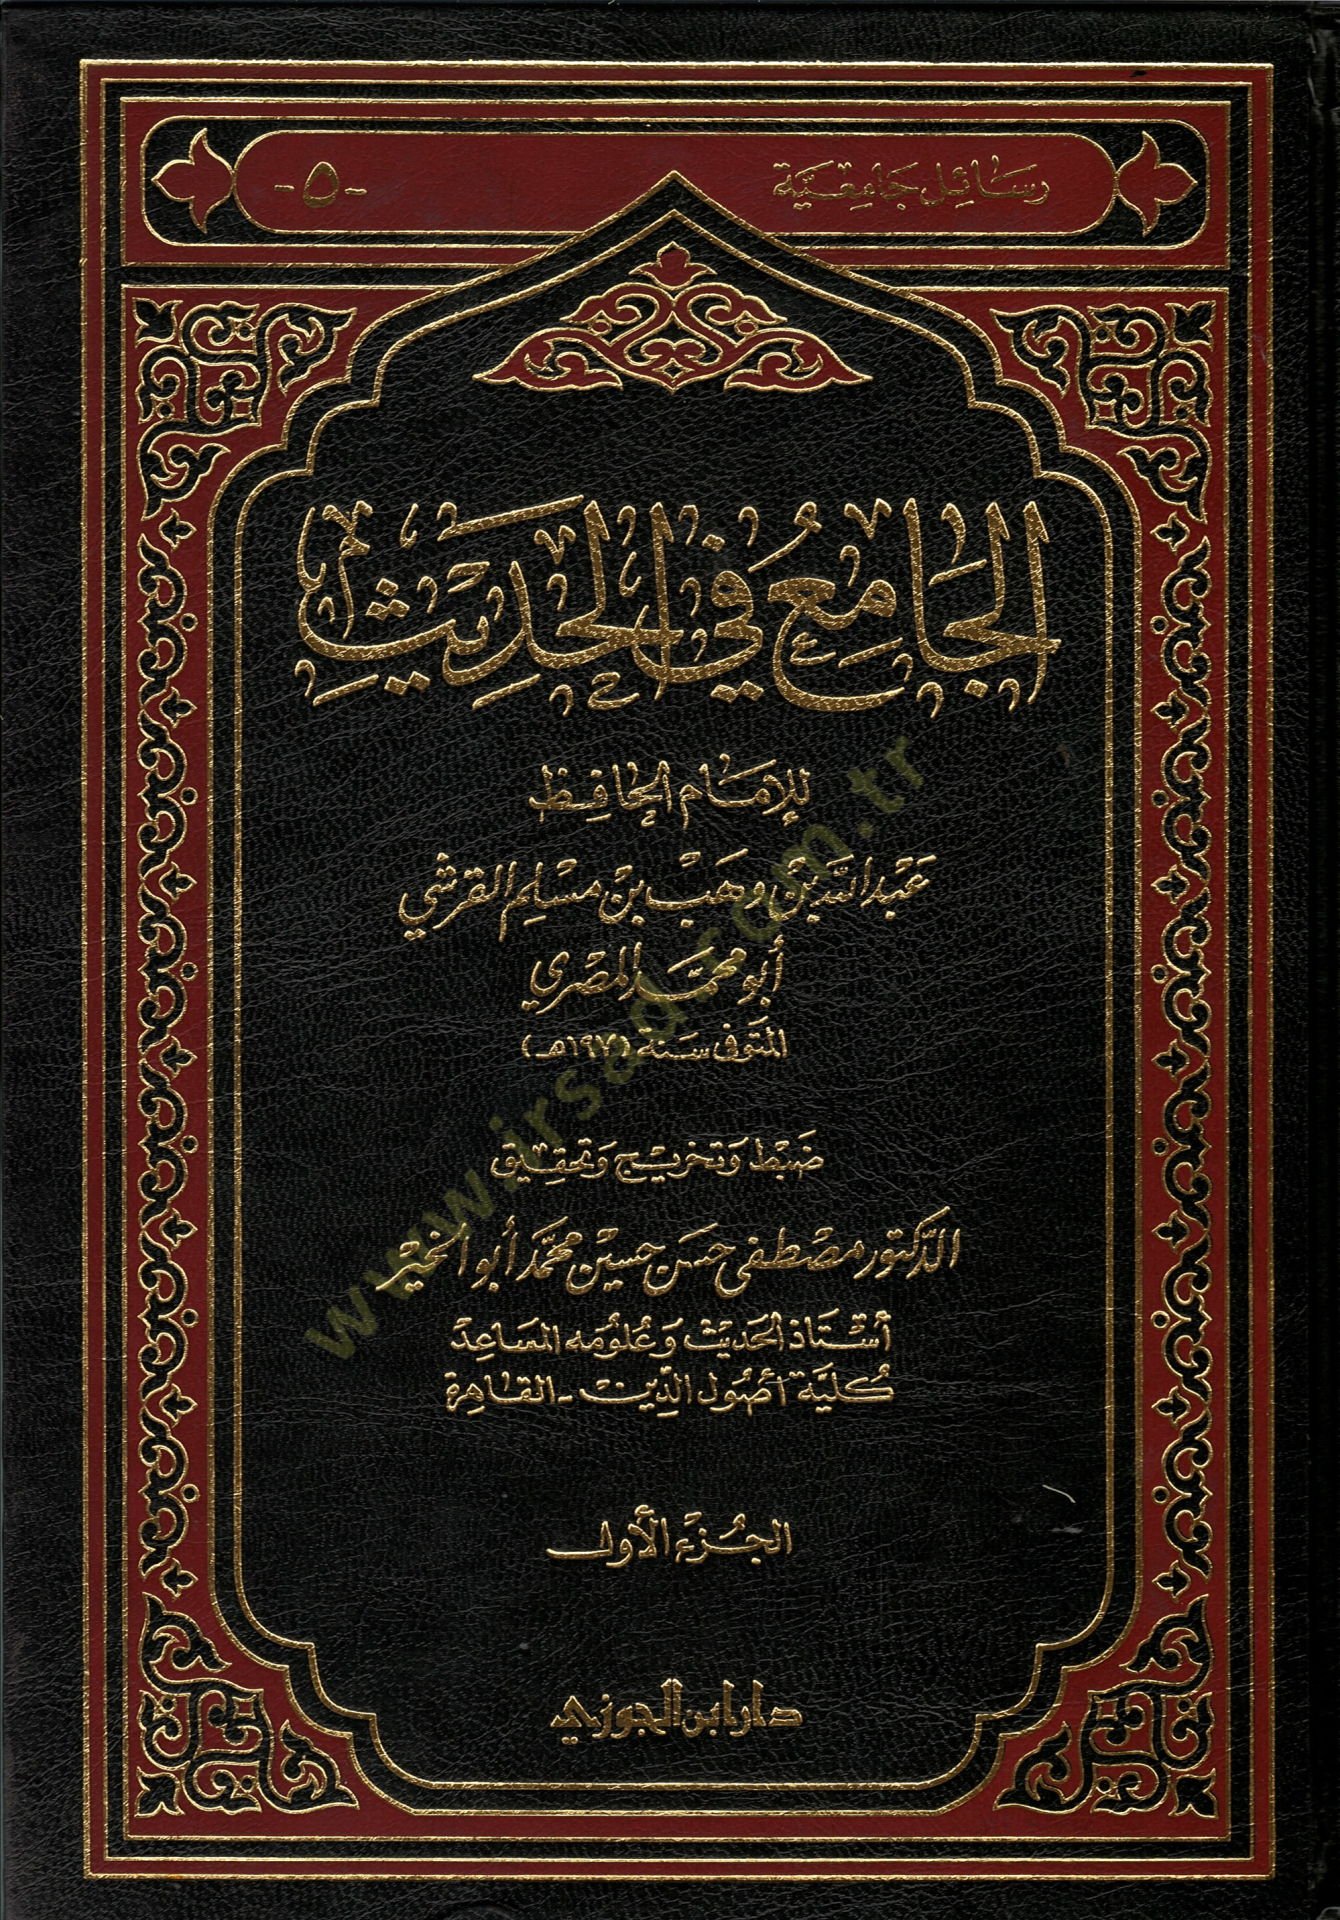 رسائل جامعية -٥-
الجَامِعُ فِي الحَدِيثِ
للإمام الحافظ
عبد الله بن وهب بن مسلم القرشي
أبو محمد المصري
المتوفى سنة (١٩٧هـ)
ضبط وتخريج وتحقيق
الدكتور مصطفى حسن حسين محمد أبو الخير
أستاذ الحديث وعلومه المساعد
كلية أصول الدين - القاهرة
الجزء الأول
دار ابن الجوزي
www.irsad.com.tr